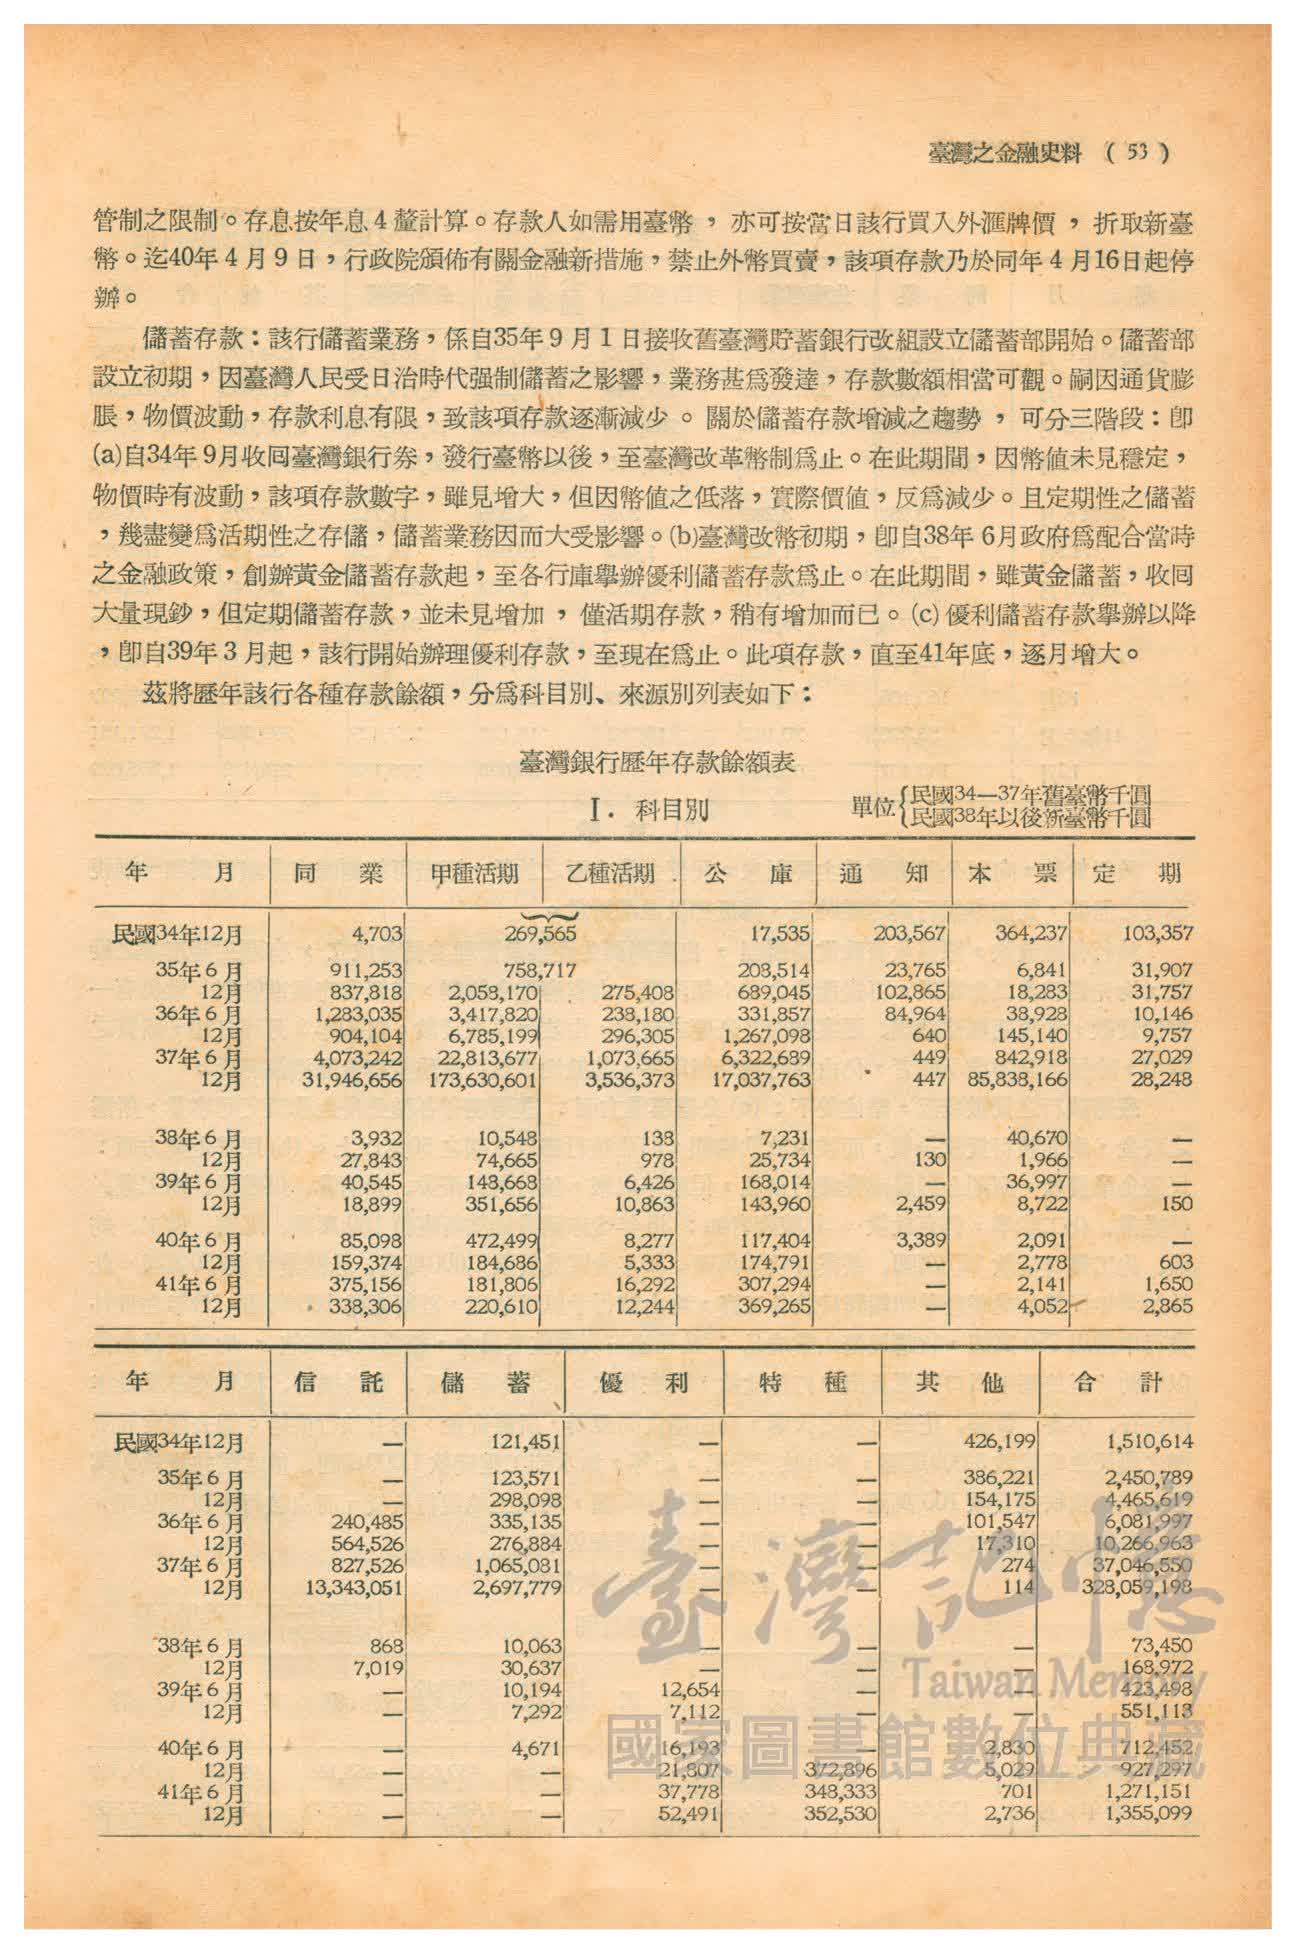 臺灣之金融史料 ( 53 )
管制之限制。存息按年息4釐計算。存款人如需用臺幣，亦可按當日該行買入外滙牌價，折取新臺
幣。迄40年4月9日，行政院頒佈有關金融新措施，禁止外幣買賣，該項存款乃於同年4月16日起停
辦。
儲蓄存款：該行儲蓄業務，係自35年9月1日接收舊臺灣貯蓄銀行改組設立儲蓄部開始。儲蓄部
設立初期，因臺灣人民受日治時代强制儲蓄之影響，業務甚爲發達，存款數額相當可觀。嗣因通貨膨
脹，物價波動，存款利息有限，致該項存款逐漸減少。關於儲蓄存款增減之趨勢，可分三階段：卽
(a)自34年9月收囘臺灣銀行券，發行臺幣以後，至臺灣改革幣制爲止。在此期間，因幣値未見穩定，
物價時有波動，該項存款數字，雖見增大，但因幣値之低落，實際價値，反爲減少。且定期性之儲蓄
，幾盡變爲活期性之存儲，儲蓄業務因而大受影響。(b)臺灣改幣初期，卽自38年6月政府爲配合當時
之金融政策，創辦黃金儲蓄存款起，至各行庫舉辦優利儲蓄存款爲止。在此期間，雖黃金儲蓄，收囘
大量現鈔，但定期儲蓄存款，並未見增加，僅活期存款，稍有增加而已。(c)優利儲蓄存款舉辦以降
，卽自39年3月起，該行開始辦理優利存款，至現在爲止。此項存款，直至41年底，逐月增大。
茲將歷年該行各種存款餘額，分爲科目別、來源別列表如下：
臺灣銀行歷年存款餘額表
I. 科目別 單位{民國34—37年舊臺幣千圓
民國38年以後新臺幣千圓
年 月 同 業 甲種活期 乙種活期 公 庫 通 知 本 票 定 期
民國34年12月 4,703 269,565 17,535 203,567 364,237 103,357
35年6月 911,253 758,717 203,514 23,765 6,841 31,907
12月 837,818 2,058,170 275,408 689,045 102,865 18,283 31,757
36年6月 1,283,035 3,417,820 238,180 331,857 84,964 38,928 10,146
12月 904,104 6,785,199 296,305 1,267,098 640 145,140 9,757
37年6月 4,073,242 22,813,677 1,073,665 6,322,689 449 842,918 27,029
12月 31,946,656 173,630,601 3,536,373 17,037,763 447 85,838,166 28,248
38年6月 3,932 10,548 138 7,231 — 40,670 —
12月 27,843 74,665 978 25,734 130 1,966 —
39年6月 40,545 148,668 6,426 168,014 — 36,997 —
12月 18,899 351,656 10,863 143,960 2,459 8,722 150
40年6月 85,098 472,499 8,277 117,404 3,389 2,091 —
12月 159,374 184,686 5,333 174,791 — 2,778 603
41年6月 375,156 181,806 16,292 307,294 — 2,141 1,650
12月 338,306 220,610 12,244 369,265 — 4,052 2,865
年 月 信 託 儲 蓄 優 利 特 種 其 他 合 計
民國34年12月 — 121,451 — — 426,199 1,510,614
35年6月 — 123,571 — — 386,221 2,450,789
12月 — 298,098 — — 154,175 4,465,619
36年6月 240,485 335,135 — — 101,547 6,081,997
12月 564,526 276,884 — — 17,310 10,266,963
37年6月 827,526 1,065,081 — — 274 37,046,550
12月 13,343,051 2,697,779 — — 114 328,059,198
38年6月 868 10,063 — — — 73,450
12月 7,019 30,637 — — — 168,972
39年6月 — 10,194 12,654 — — 423,498
12月 — 7,292 7,112 — — 551,113
40年6月 — 4,671 16,193 — 2,830 712,452
12月 — — 21,807 372,896 5,029 927,297
41年6月 — — 37,778 348,333 701 1,271,151
12月 — — 52,491 352,530 2,736 1,355,099
臺灣記憶
Taiwan Memory
國家圖書館數位典藏